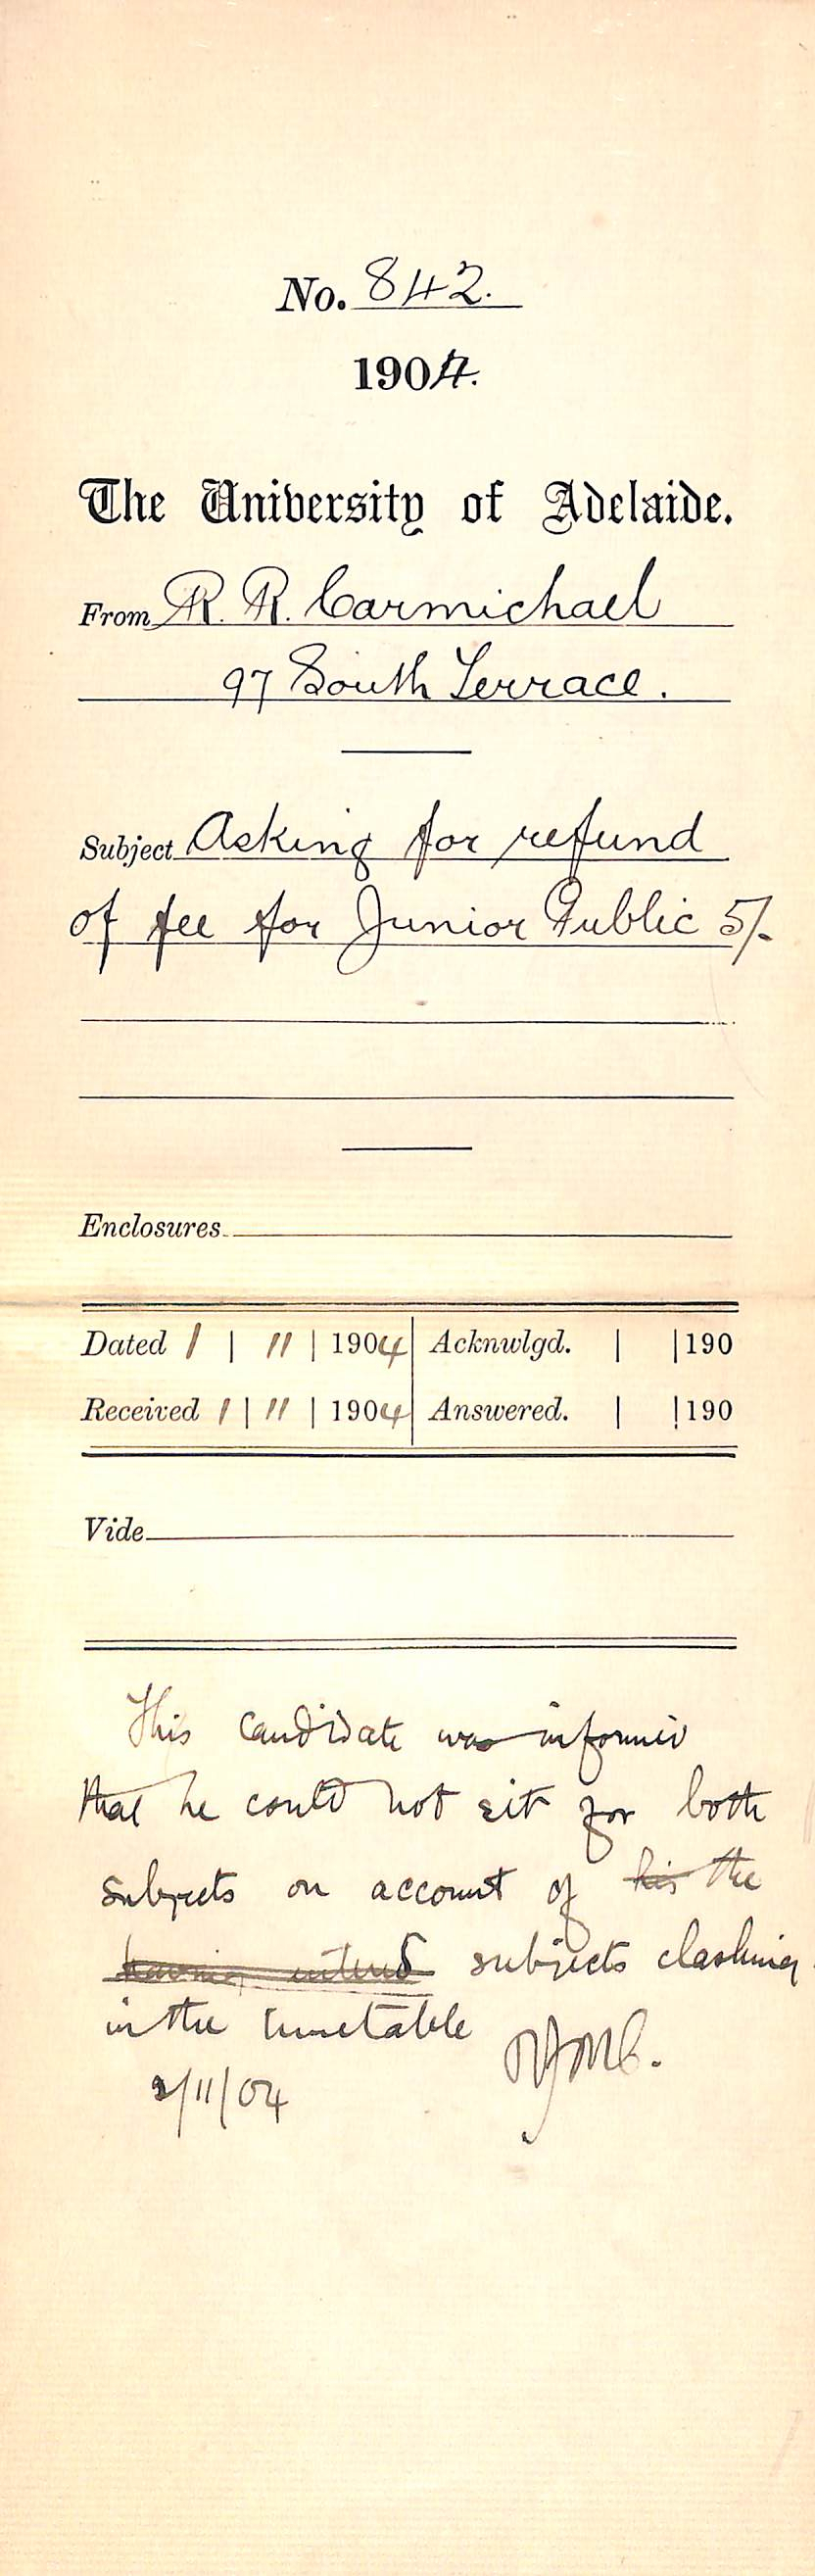 No. 842.
1904.
The University of Adelaide.
From R. R. Carmichael
97 South Terrace.
Subject Asking for refund
of fee for Junior Public 5/-
Enclosures
Dated 1 | 11 | 1904 Acknwlgd. | | 190
Received 1 | 11 | 1904 Answered. | | 190
Vide
This candidate was informed
that he could not sit for both
subjects on account of his the
having entered subjects clashing
in the timetable
2/11/04